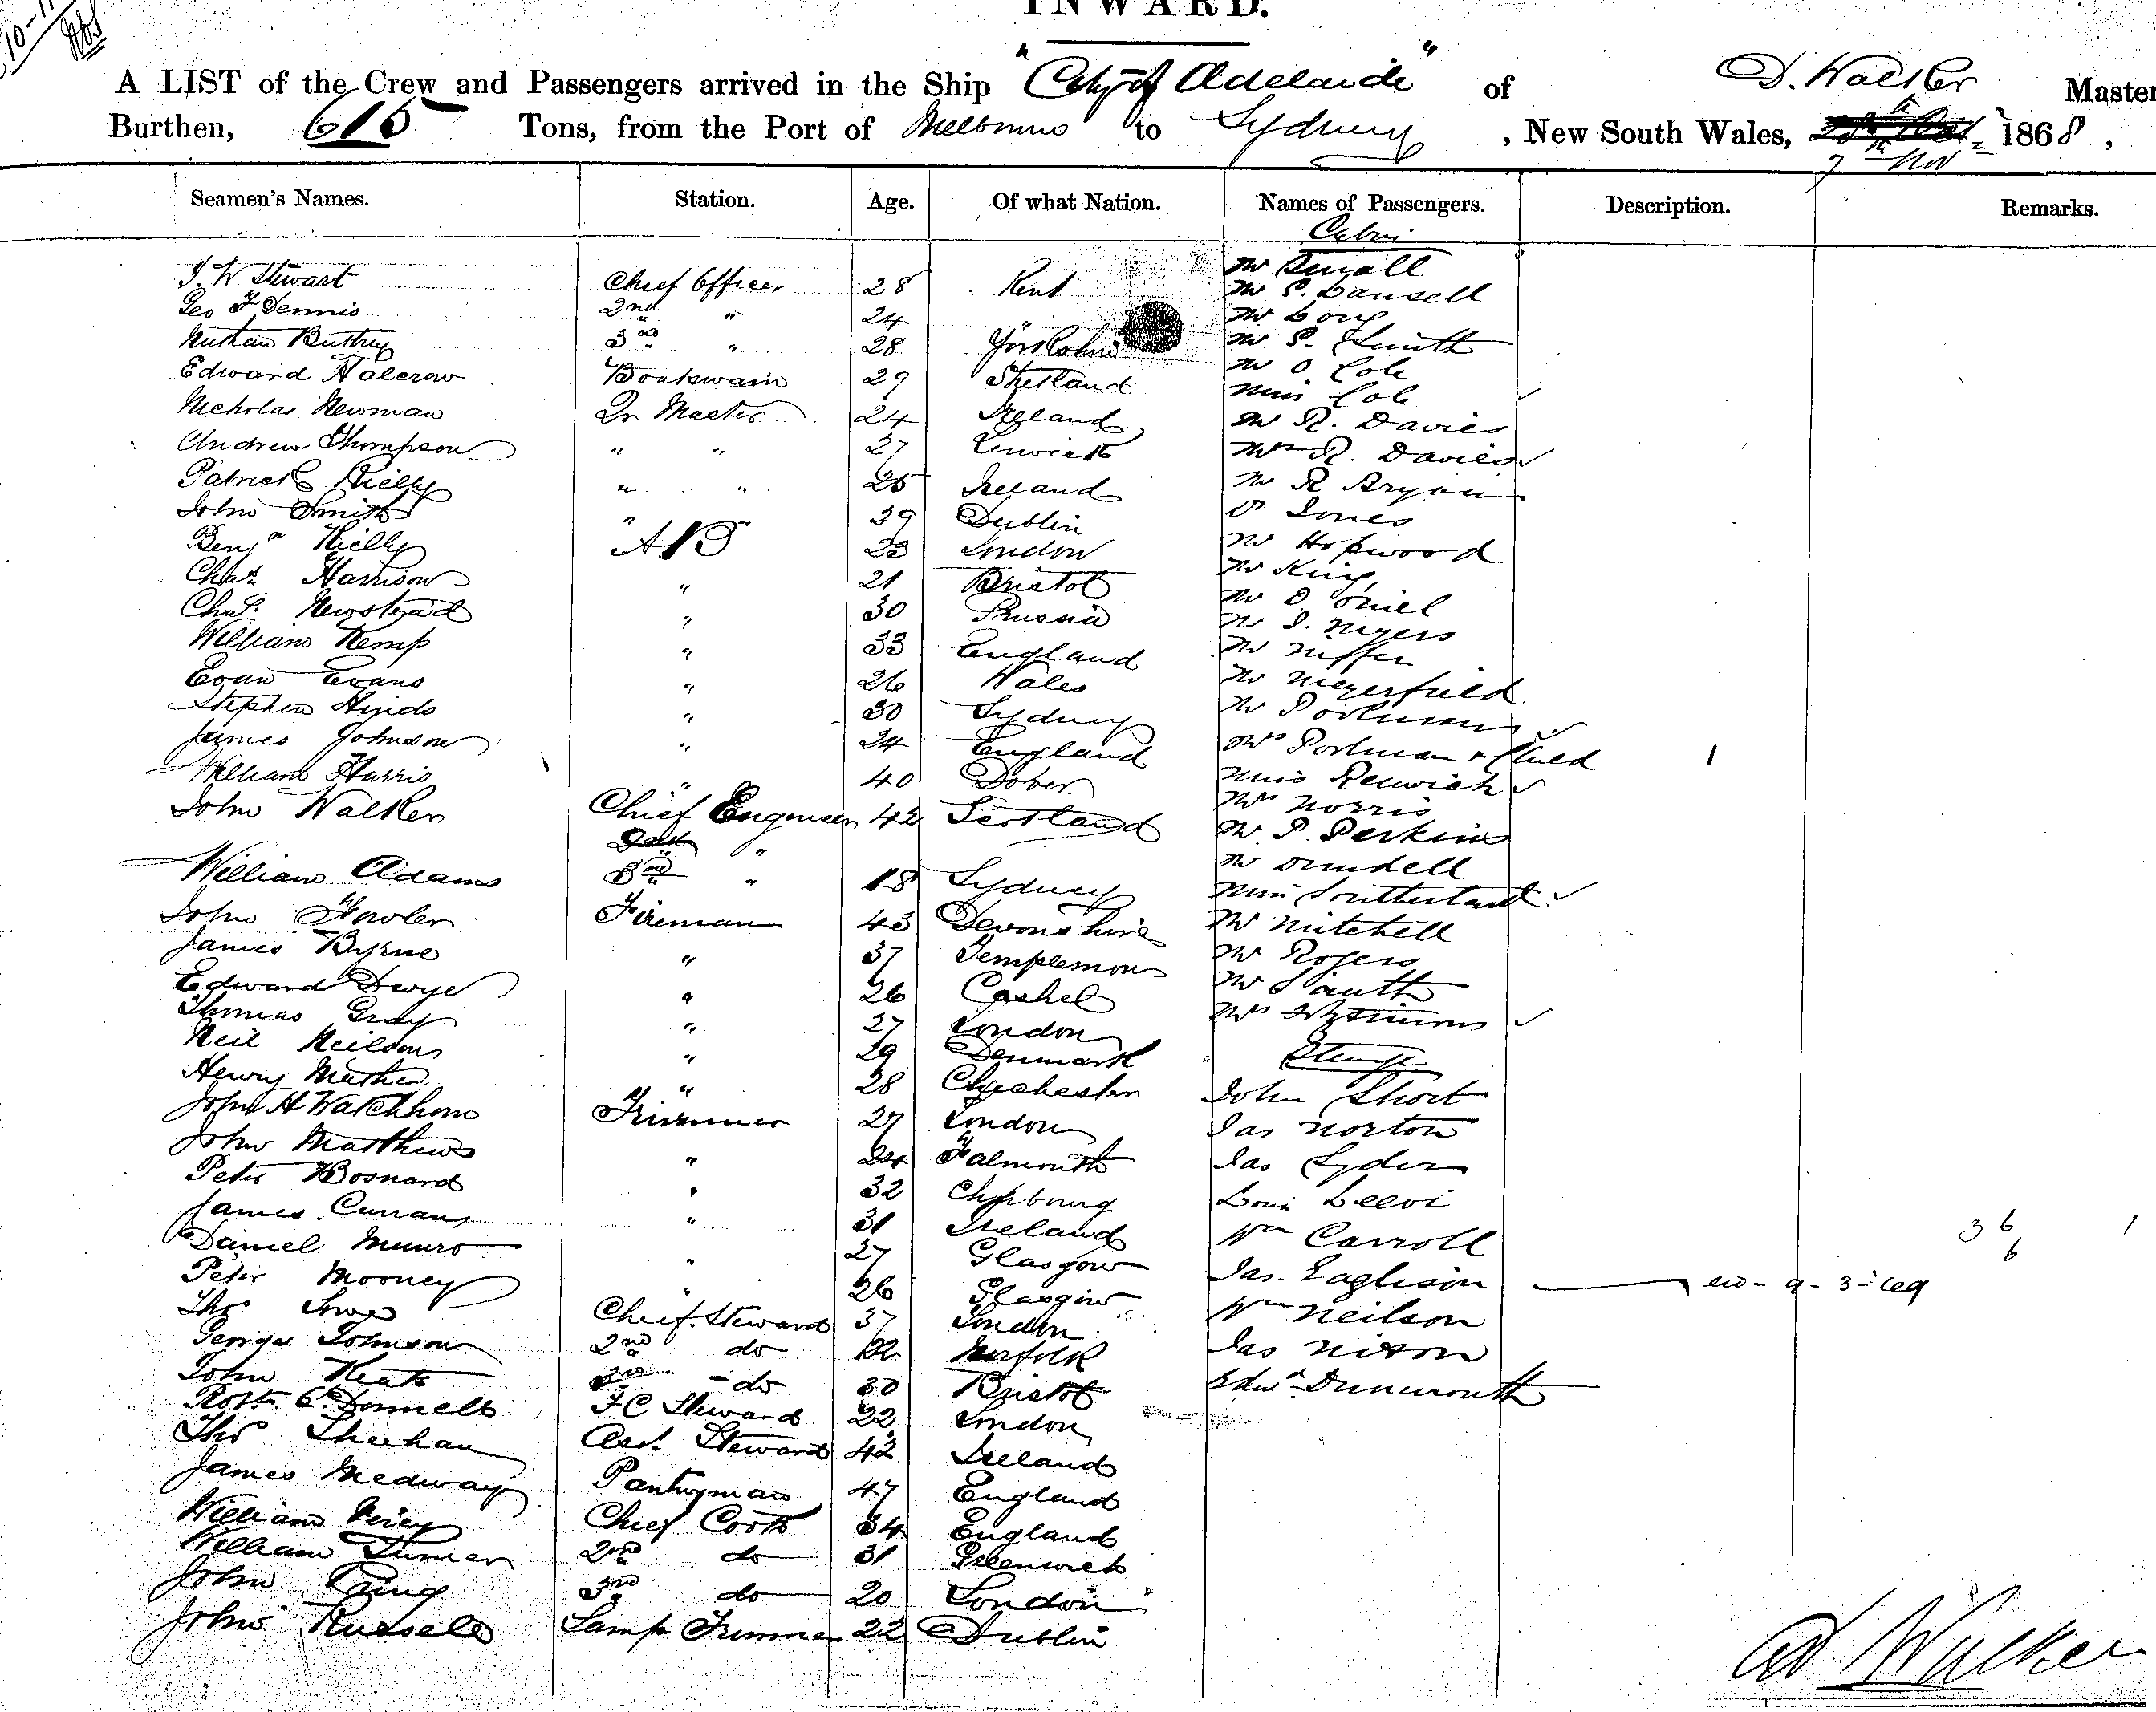 INWARD.
A LIST of the Crew and Passengers arrived in the Ship "City of Adelaide" of D. Walker Master
Burthen, 615 Tons, from the Port of Melbourne to Sydney, New South Wales, 7th Nov 1868,
Seamen's Names. Station. Age. Of what Nation. Names of Passengers. Description. Remarks.
Cabin
J. W Stewart Chief Officer 28 Kent Mr Small
Geo F Dennis 2nd " 24 " Mr S.
Nathan 3rd " 28 Yorkshire Mr Long
Edward Halcrow Boatswain 29 Shetland Mr S. Smith
Nicholas Newman Qr Master 24 Ireland Mr O Cole
Miss Cole
Andrew Thompson " " 27 Lerwick Mr R. Davies
Patrick Kielly " " 25 Ireland Mrs R. Davies
John Smith " " 39 Dublin Mr R Bryan
Benjn Kielly AB 23 London Jones
Chas. Harrison " 21 Bristol Mr Hopwood
Chas. Newstead " 30 Prussia Mr King
William Kemp " 33 England Mr O'Niel
Evan Evans " 26 Wales Mr J. Myers
Stephen Hinds " 30 Sydney Mr
James Johnson " 24 England Mr Meyerfield
William Harris " 40 Dover Mr Portman
Mrs Portman & Child 1
John Walker Chief Engineer 42 Scotland Miss Renwick
2nd " Mrs Norris
William Adams 3rd " 18 Sydney Mr P. Perkins
John Fowler Fireman 43 Devonshire Mr
James Byrne " 37 Templemore Miss Southerland
Edward Dwyer " 26 Cashel Mr Mitchell
Thomas Gray " 27 London Mr Rogers
Neil Neilson " 29 Denmark Mr
Henry Mather " 28 Chichester Mrs
Steerage
John H Watchhorn Trimmer 27 London John Short
John Matthews " 24 Falmouth Jas Norton
Peter Bosnard " 32 Jas
James Curran " 31 Ireland Louis Leevi
Daniel Munro " 27 Glasgow Wm Carroll 36 1
6
Peter Mooney " 26 Glasgow Jas. Eaglison 9 - 3
Thos Chief Steward 37 London Wm Neilson
George Johnson 2nd do 22 Norfolk Jas Nixon
John Keats 3rd do 30 Bristol Edwd
Robt O'Donnell F C Steward 22 London
Thos Sheehan Asst. Steward 42 Ireland
James Medway Pantryman 47 England
William Chief Cook 34 England
William Turner 2nd do 31 Greenwich
John King 3rd do 20 London
John Russell Lamp Trimmer 22 Dublin
D Walker